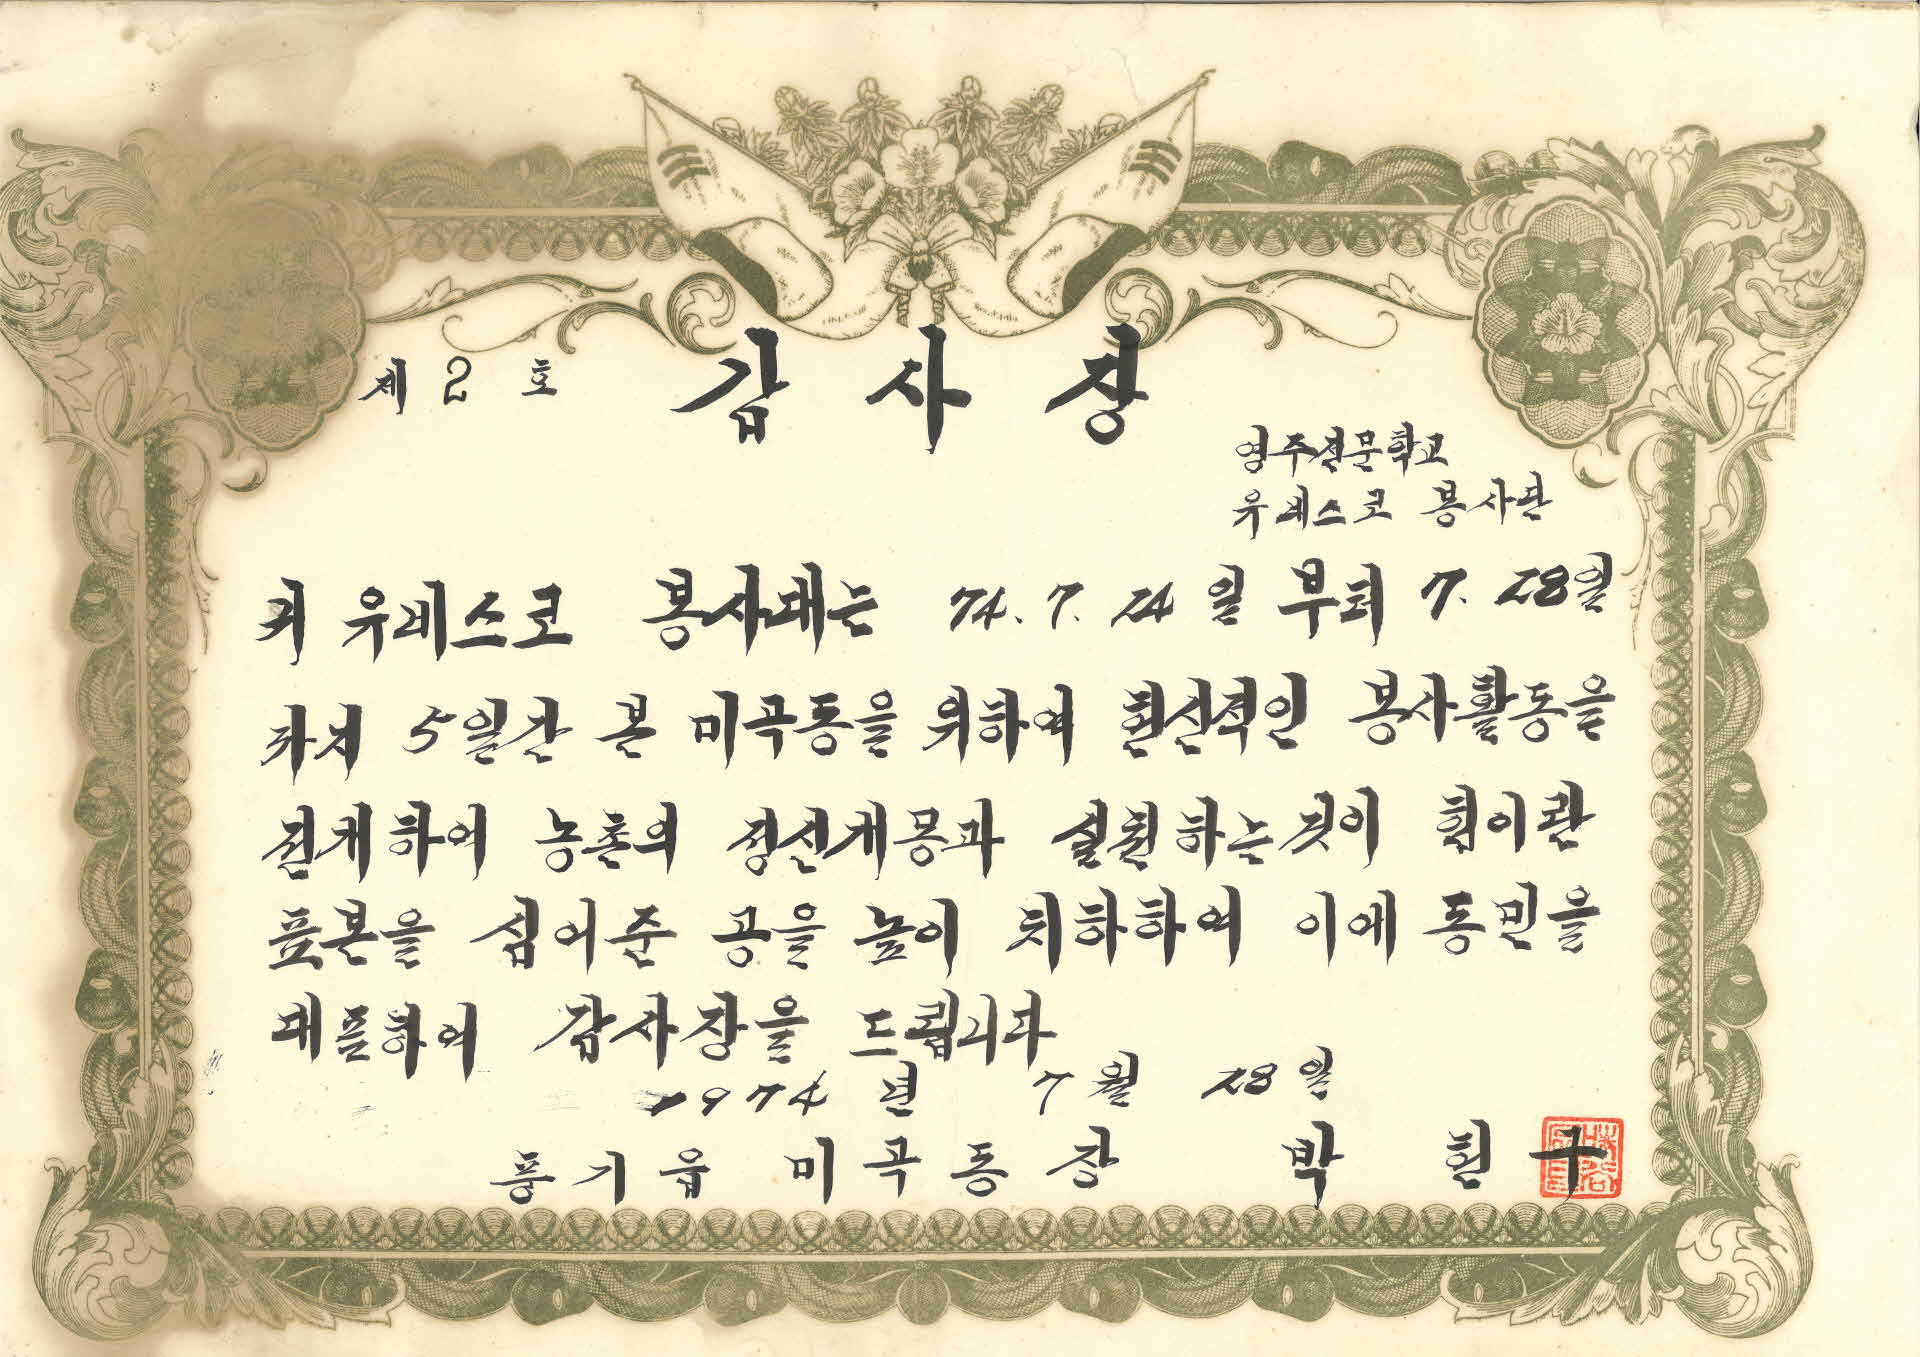 제 2 호
감 사 장
영주전문학교
유네스코 봉사단
귀 유네스코 봉사대는 74. 7. 24 일 부터 7. 28일
까지 5일간 본 미곡동을 위하여 헌신적인 봉사활동을
전개하여 농촌의 정신개몽과 실천하는것이 힘이란
표본을 심어준 공을 높이 치하하여 이에 동민을
대표하여 감사장을 드립니다
1974 년 7 월 28 일
풍기읍 미곡동장 박 헌 구